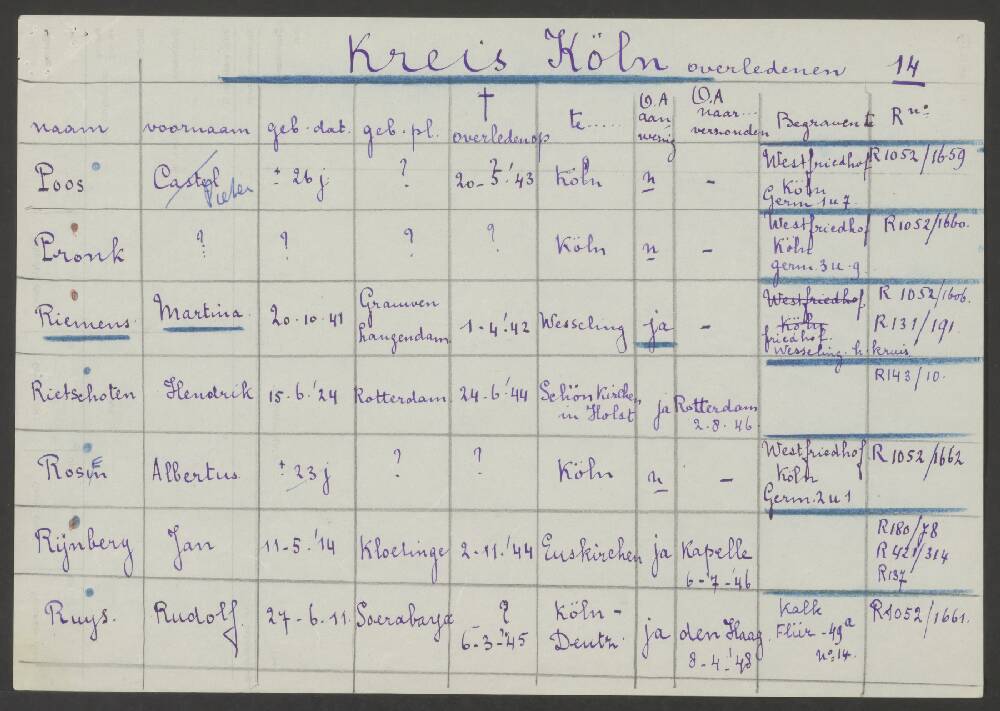 Kreis Köln overledenen 14
naam voornaam geb. dat. geb. pl. † overleden op te...... O.A aan wezig O.A naar... verzonden Begraven te R nos
Poos Castel Pieter ± 26 j ? ? 20-5-'43 Köln n - Westfriedhof Köln Germ 1 u 7. R 1052/1659
Pronk ? ? ? ? Köln n - Westfriedhof Köln germ. 3 u. 9. R 1052/1660.
Riemens Martina 20-10-41 Grauwen Langendam 1-4-'42 Wesseling ja - Westfriedhof Köln friedhof Wesseling. h. kruis R 1052/1606. R 131/191.
Rietschoten Hendrik 15-6-'24 Rotterdam 24-6-'44 Schönkirchen in Holst ja Rotterdam 2-8-46 R 143/10.
Rosin Albertus ± 23 j ? ? Köln n - Westfriedhof Köln Germ. 2 u 1 R 1052/1662
Rijnberg Jan 11-5-'14 Kloetinge 2-11-'44 Euskirchen ja Kapelle 6-7-'46 R 180/78 R 421/314 R 137
Ruys. Rudolf 27-6-11. Soerabaya ? 6-3-'45 Köln - Deutz. ja den Haag 8-4-'48 Kalk Flür - 49a No: 14. R 1052/1661.